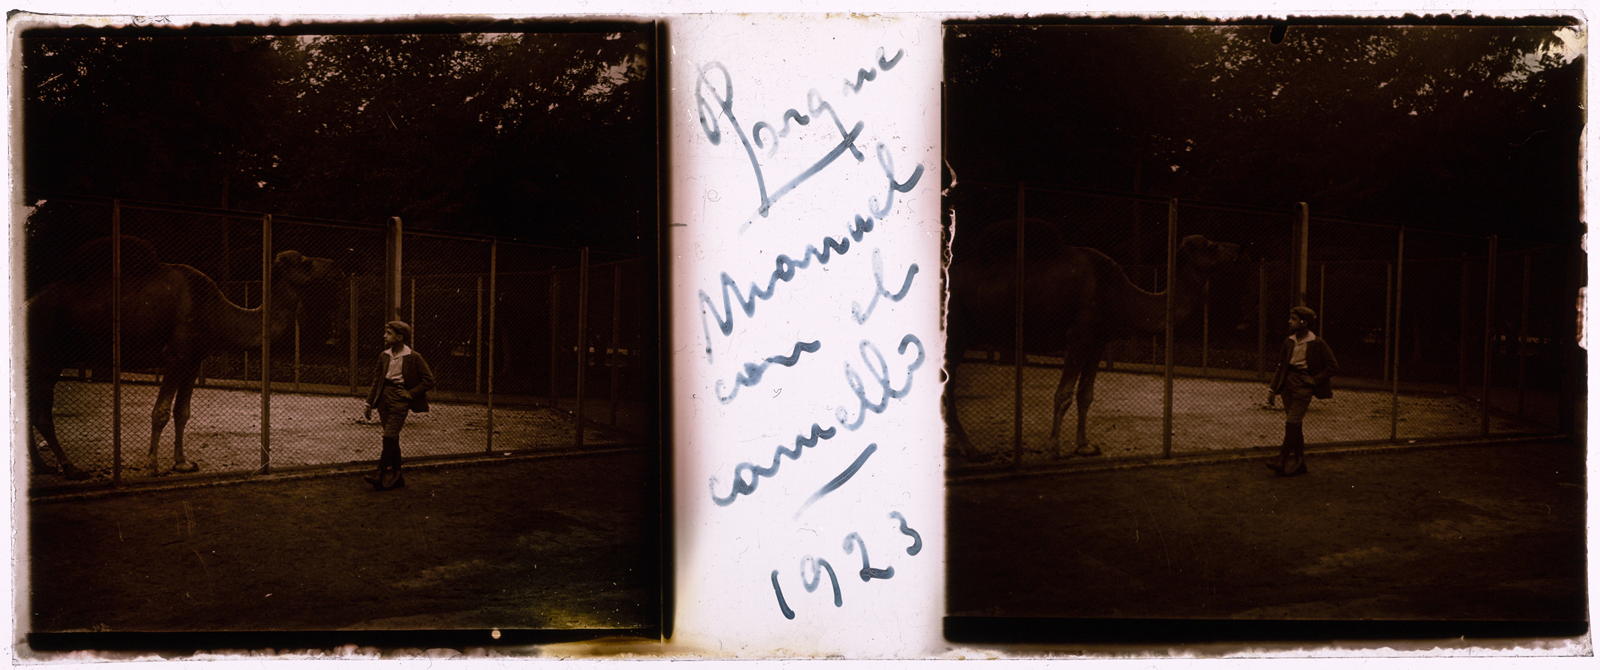 Parque
Manuel
con el
camello
1923